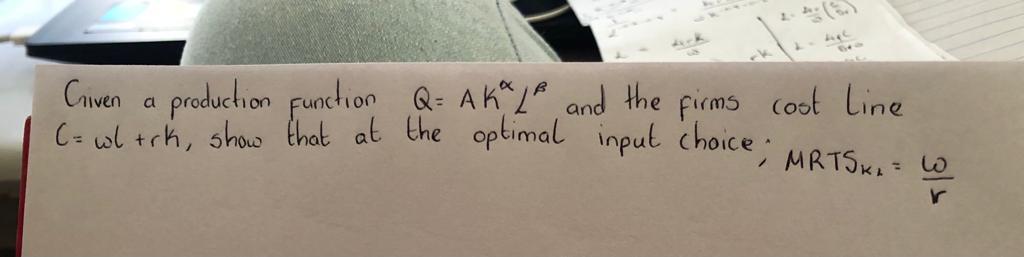 Given a production function Q= AK^α L^β and the firms cost line
C= wl + rk, show that at the optimal input choice; MRTS_KL = w/r